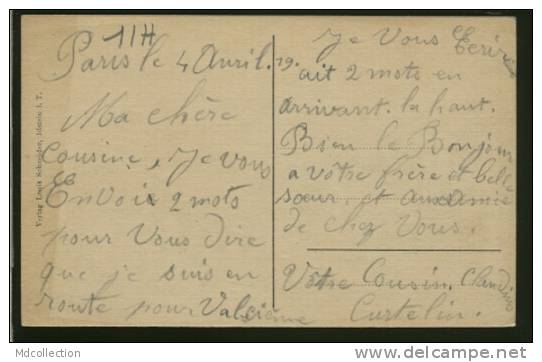 11H
Paris le 4 Avril. 19.
Ma chère
Cousine, Je vous
Envoie 2 mots
pour Vous dire
que je suis en
route pour
Je Vous Ecrir
ait 2 mots en
arrivant. la haut.
Bien le Bonjour
a vôtre frère et belle
soeur. et aux amie
de chez Vous.
Vôtre Cousin. Claudius
Curtelin.
Verlag Louis Schneider, Idstein i. T.
Mdcollection
http://www.delcampe.net